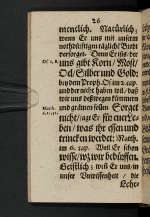 26
menclich. Natürlich /
wenn Er uns mit unsern
nothdürfftigen täglichē Brodt
versorget. Denn Er ist der
uns gibt Korn / Most /
Oel / Silber und Gold:
bey dem Proph. Os. 2. cap.
und der nicht haben wil / daß
wir uns deßwegen kümmern
und grämen sollen Sorget
nicht / sagt Er für euer Le-
ben / was ihr essen und
trincken werdet: Matth.
am 6. cap. Weil Er schon
wisse / wz wir bedürffen.
Geistlich; weñ Er uns in
unser Unwissenheit / die
Lehr-